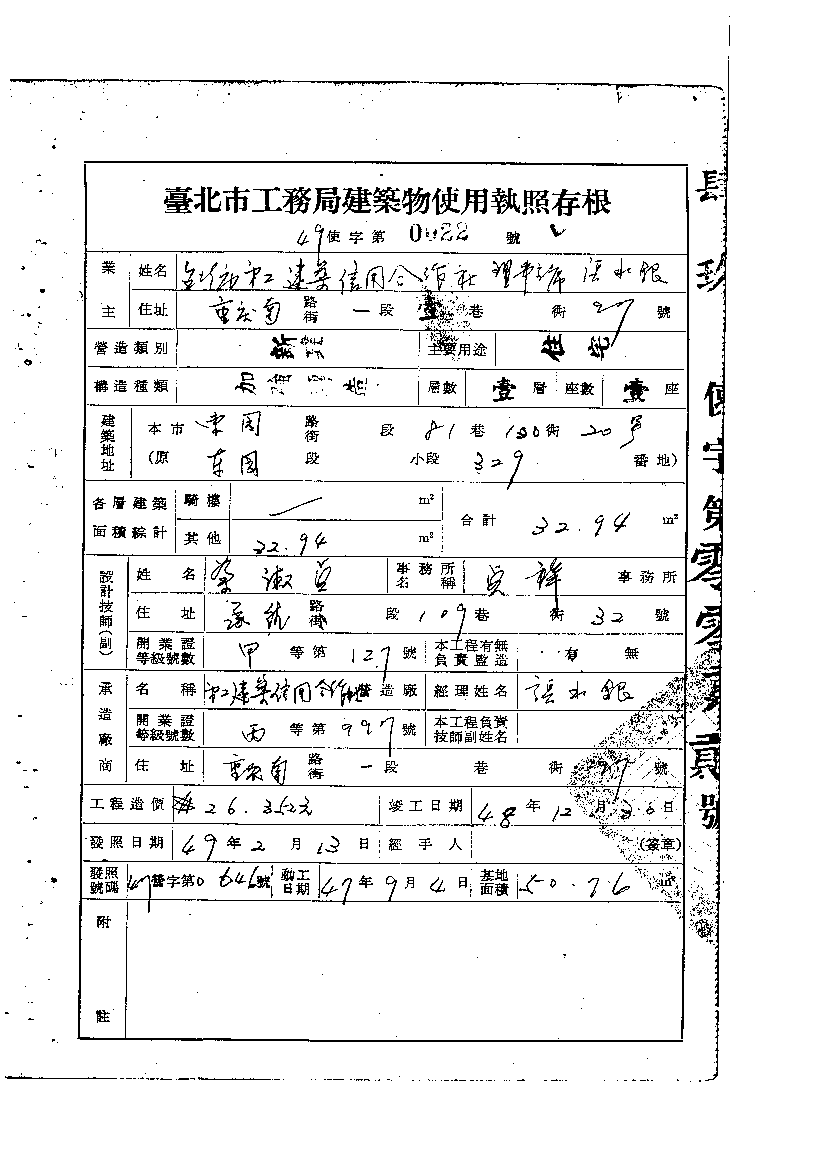 臺北市工務局建築物使用執照存根
49使字第0022號
業主 姓名 建築信用合作社 理事主席 張水銀
住址 重慶南 路街 一段 壹 巷 街 27 號
營造類別 新建 主要用途 住宅
構造種類 加強磚造 層數 壹層 座數 壹座
建築地址 本市 東園 路街 段 81巷 130街 20号
(原 東園 段 小段 329 番地)
各層建築面積綜計 騎樓 m² 合計 32.94 m²
其他 32.94 m²
設計技師(副) 姓名 淑貞 事務所名稱 貞祥 事務所
住址 路街 段 109巷 街 32 號
開業證等級號數 甲等第127號 本工程有無負責監造 有 無
承造廠商 名稱 建築信用合作社 營造廠 經理姓名 張水銀
開業證等級號數 丙等第997號 本工程負責技師副姓名
住址 重慶南 路街 一段 巷 街 27 號
工程造價 26.352元 竣工日期 48年12月30日
發照日期 49年2月13日 經手人 (簽章)
發照號碼 47營字第0646號 動工日期 47年9月4日 基地面積 50.76 m²
附註
肆玖使字第零零貳貳號